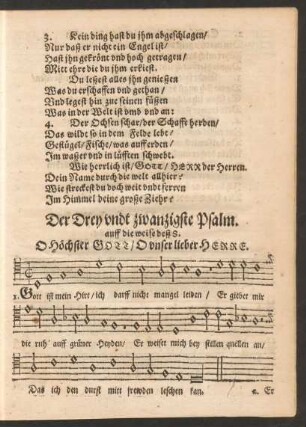 3. Kein ding hast du jhm abgeschlagen/
Nur daß er nicht ein Engel ist/
Hast jhn gekrönt vnd hoch getragen/
Mitt ehre die du jhm erkiest.
Du leßest alles jhn genießen
Was du erschaffen vnd gethan/
Vnd legest hin zue seinen füßen
Was in der Welt ist vmb vnd an:
4. Der Ochsen schar/der Schaffe herden/
Das wildt so in dem Felde lebt/
Geflügel/Fische/was aufferden/
Im waßer vnd in lüfften schwebt.
Wie herrlich ist/GOTT/HERR der Herren.
Dein Name durch die welt allhier:
Wie streckest du doch weit vnd ferren
Im Himmel deine große Ziehr:
Der Drey vndt zwanzigste Psalm.
auff die weise deß 8.
O Höchster GOTT/O vnser lieber HERRE.
1. Gott ist mein Hirt/ich darff nicht mangel leiden/ Er giebet mir
die ruh auff grüner Heyden/ Er weiset mich bey stillen quellen an/
Das ich den durst mitt freyden leschen kan. 2. Er